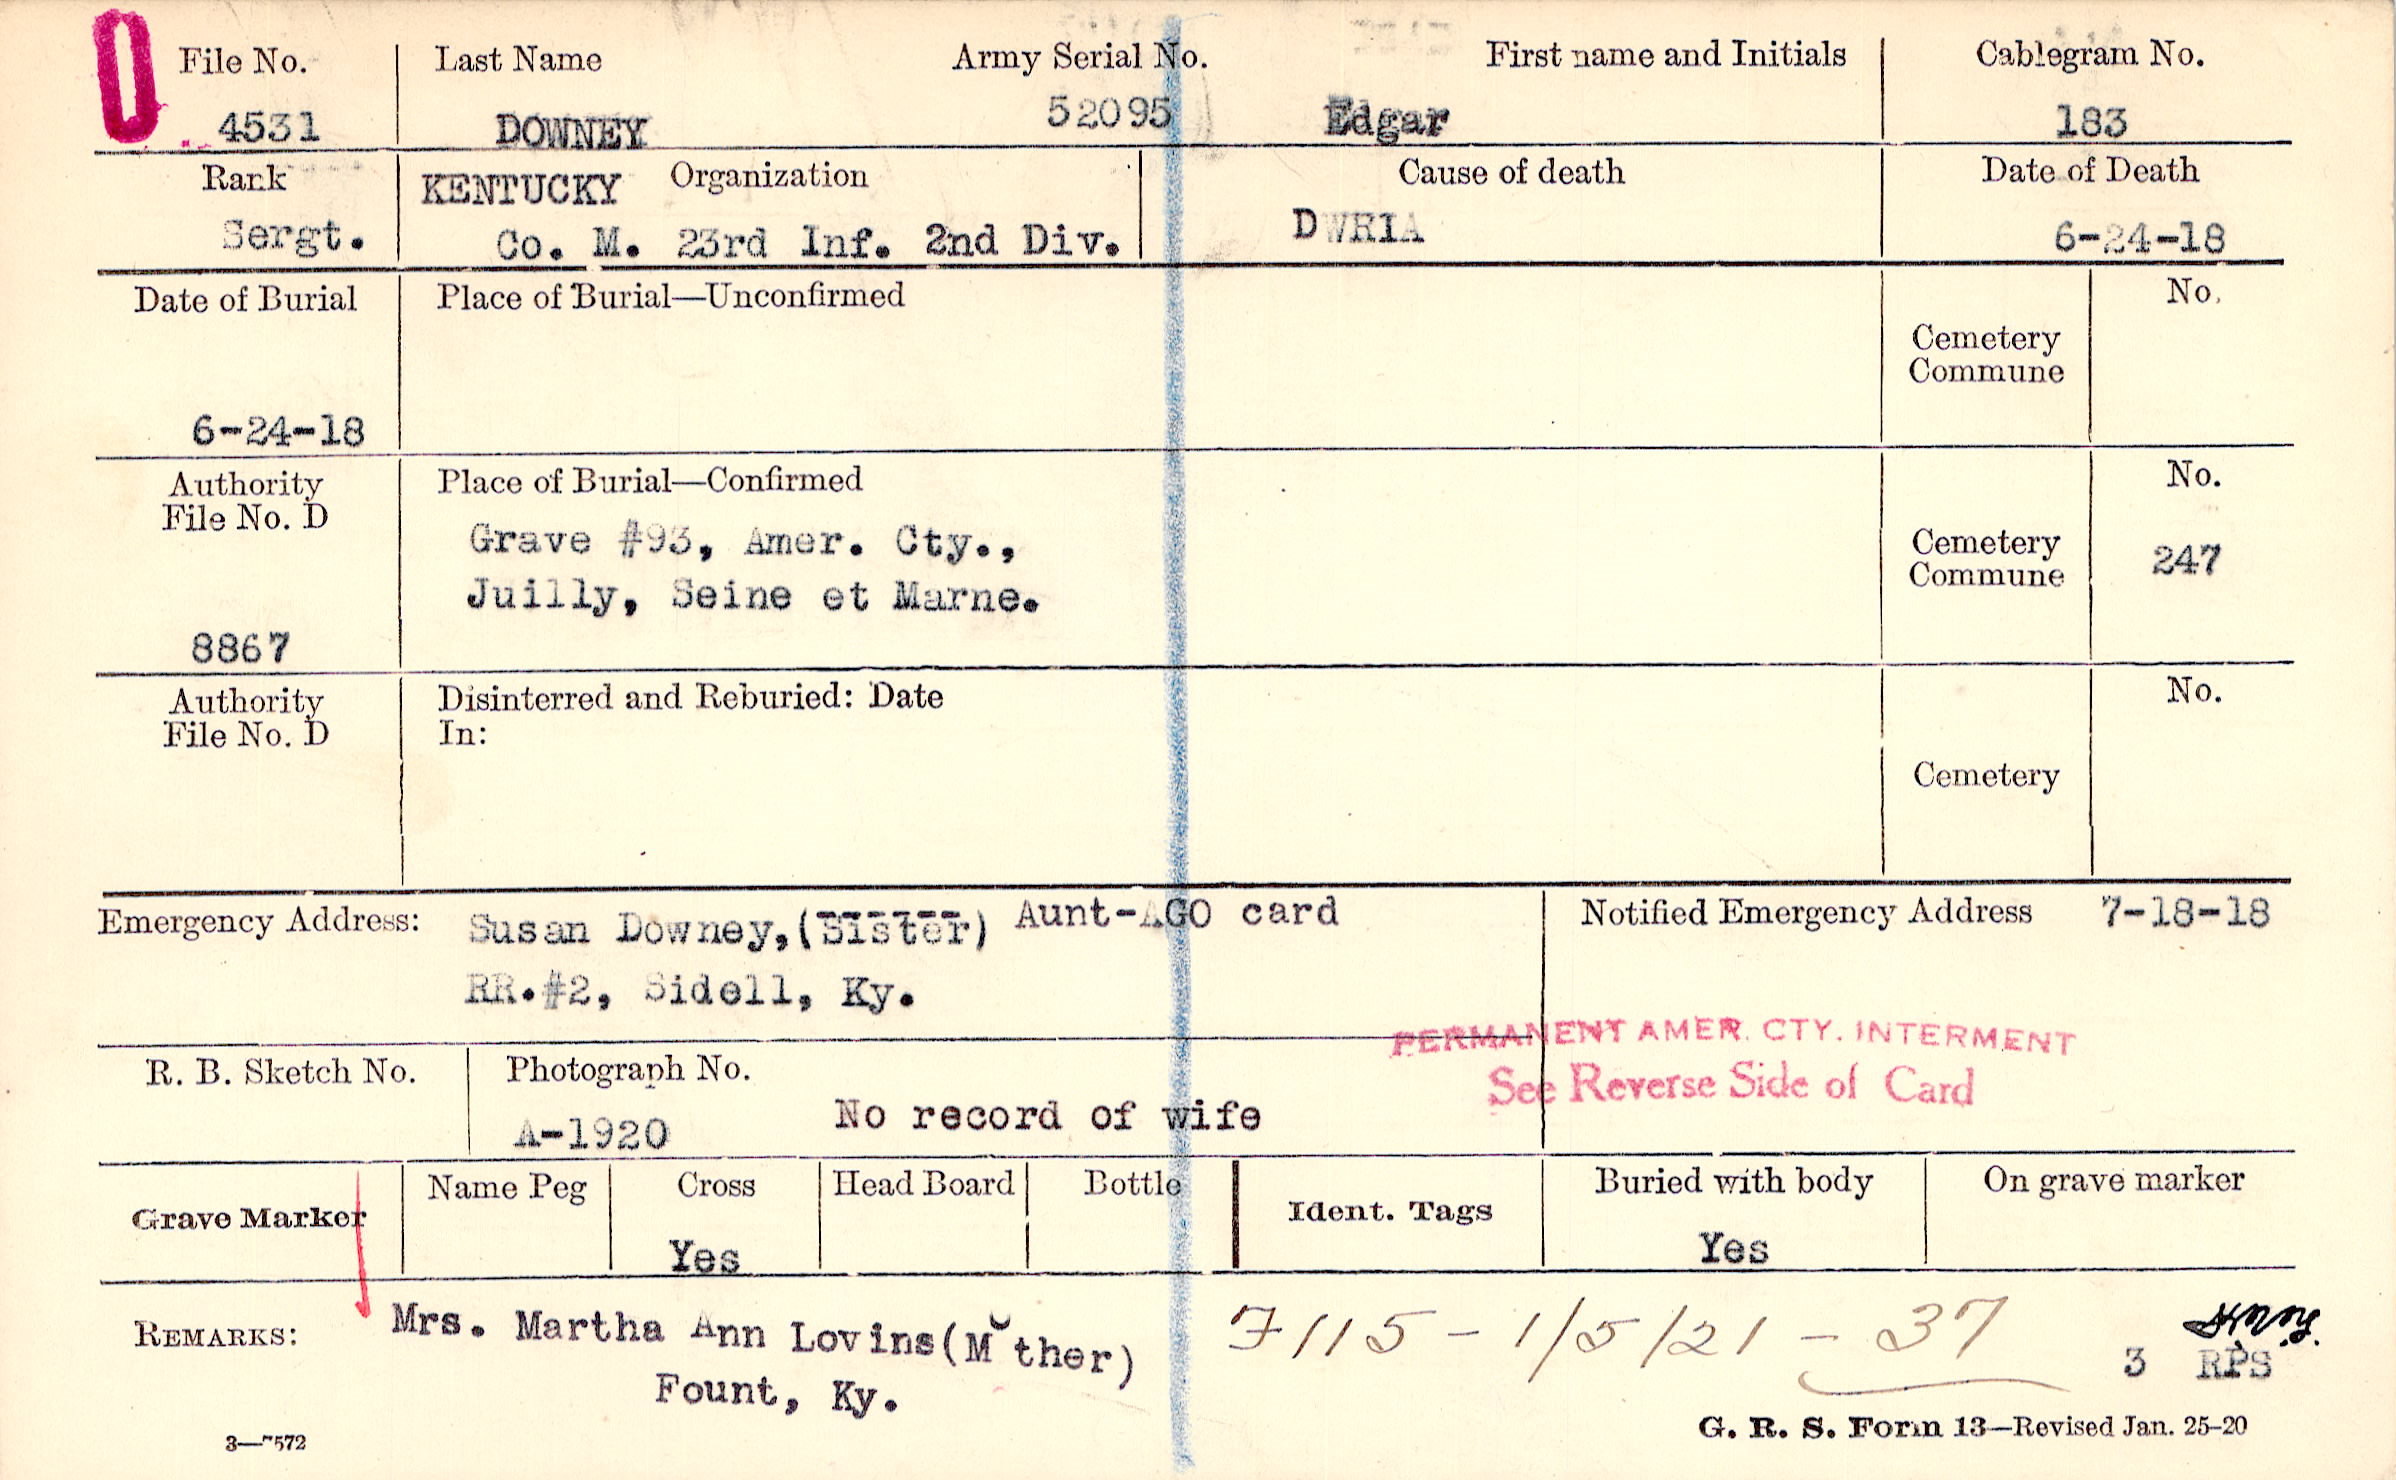 File No. Last Name Army Serial No. First name and Initials Cablegram No.
4531 DOWNEY 52095 Edgar 183
Rank KENTUCKY Organization Cause of death Date of Death
Sergt. Co. M. 23rd Inf. 2nd Div. DWRIA 6-24-18
Date of Burial Place of Burial—Unconfirmed No.
Cemetery
Commune
6-24-18
Authority Place of Burial—Confirmed No.
File No. D
Grave #93, Amer. Cty., Cemetery 247
Juilly, Seine et Marne. Commune
8867
Authority Disinterred and Reburied: Date No.
File No. D In:
Cemetery
Emergency Address: Susan Downey,(Sister) Aunt-AGO card Notified Emergency Address 7-18-18
RR.#2, Sidell, Ky.
PERMANENT AMER. CTY. INTERMENT
See Reverse Side of Card
R. B. Sketch No. Photograph No.
A-1920 No record of wife
Grave Marker Name Peg Cross Head Board Bottle Ident. Tags Buried with body On grave marker
Yes Yes
REMARKS: Mrs. Martha Ann Lovins(Mother) 7115 - 1/5/21 - 37
Fount, Ky. 3 RPS
3—7572 G. R. S. Form 13—Revised Jan. 25-20